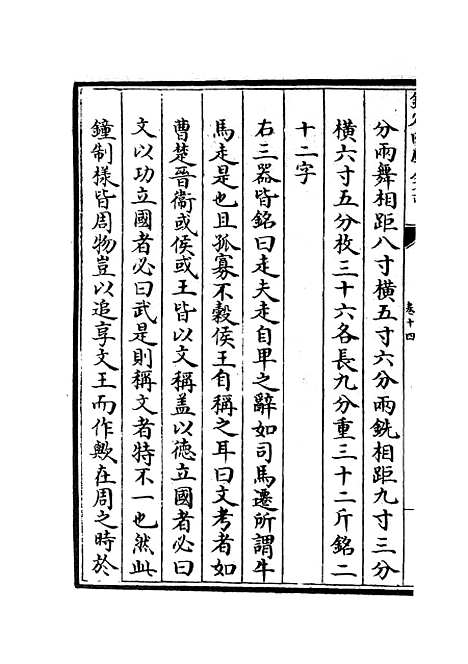 卷十四
分兩舞相距八寸横五寸六分兩銑相距九寸三分
横六寸五分枚三十六各長九分重三十二斤銘二
十二字
右三器皆銘曰走夫走自卑之辭如司馬遷所謂牛
馬走是也且孤寡不穀侯王自稱之耳曰文考者如
曹楚晉衛或侯或王皆以文稱盖以德立國者必曰
文以功立國者必曰武是則稱文者特不一也然此
鐘制様皆周物豈以追享文王而作歟在周之時於